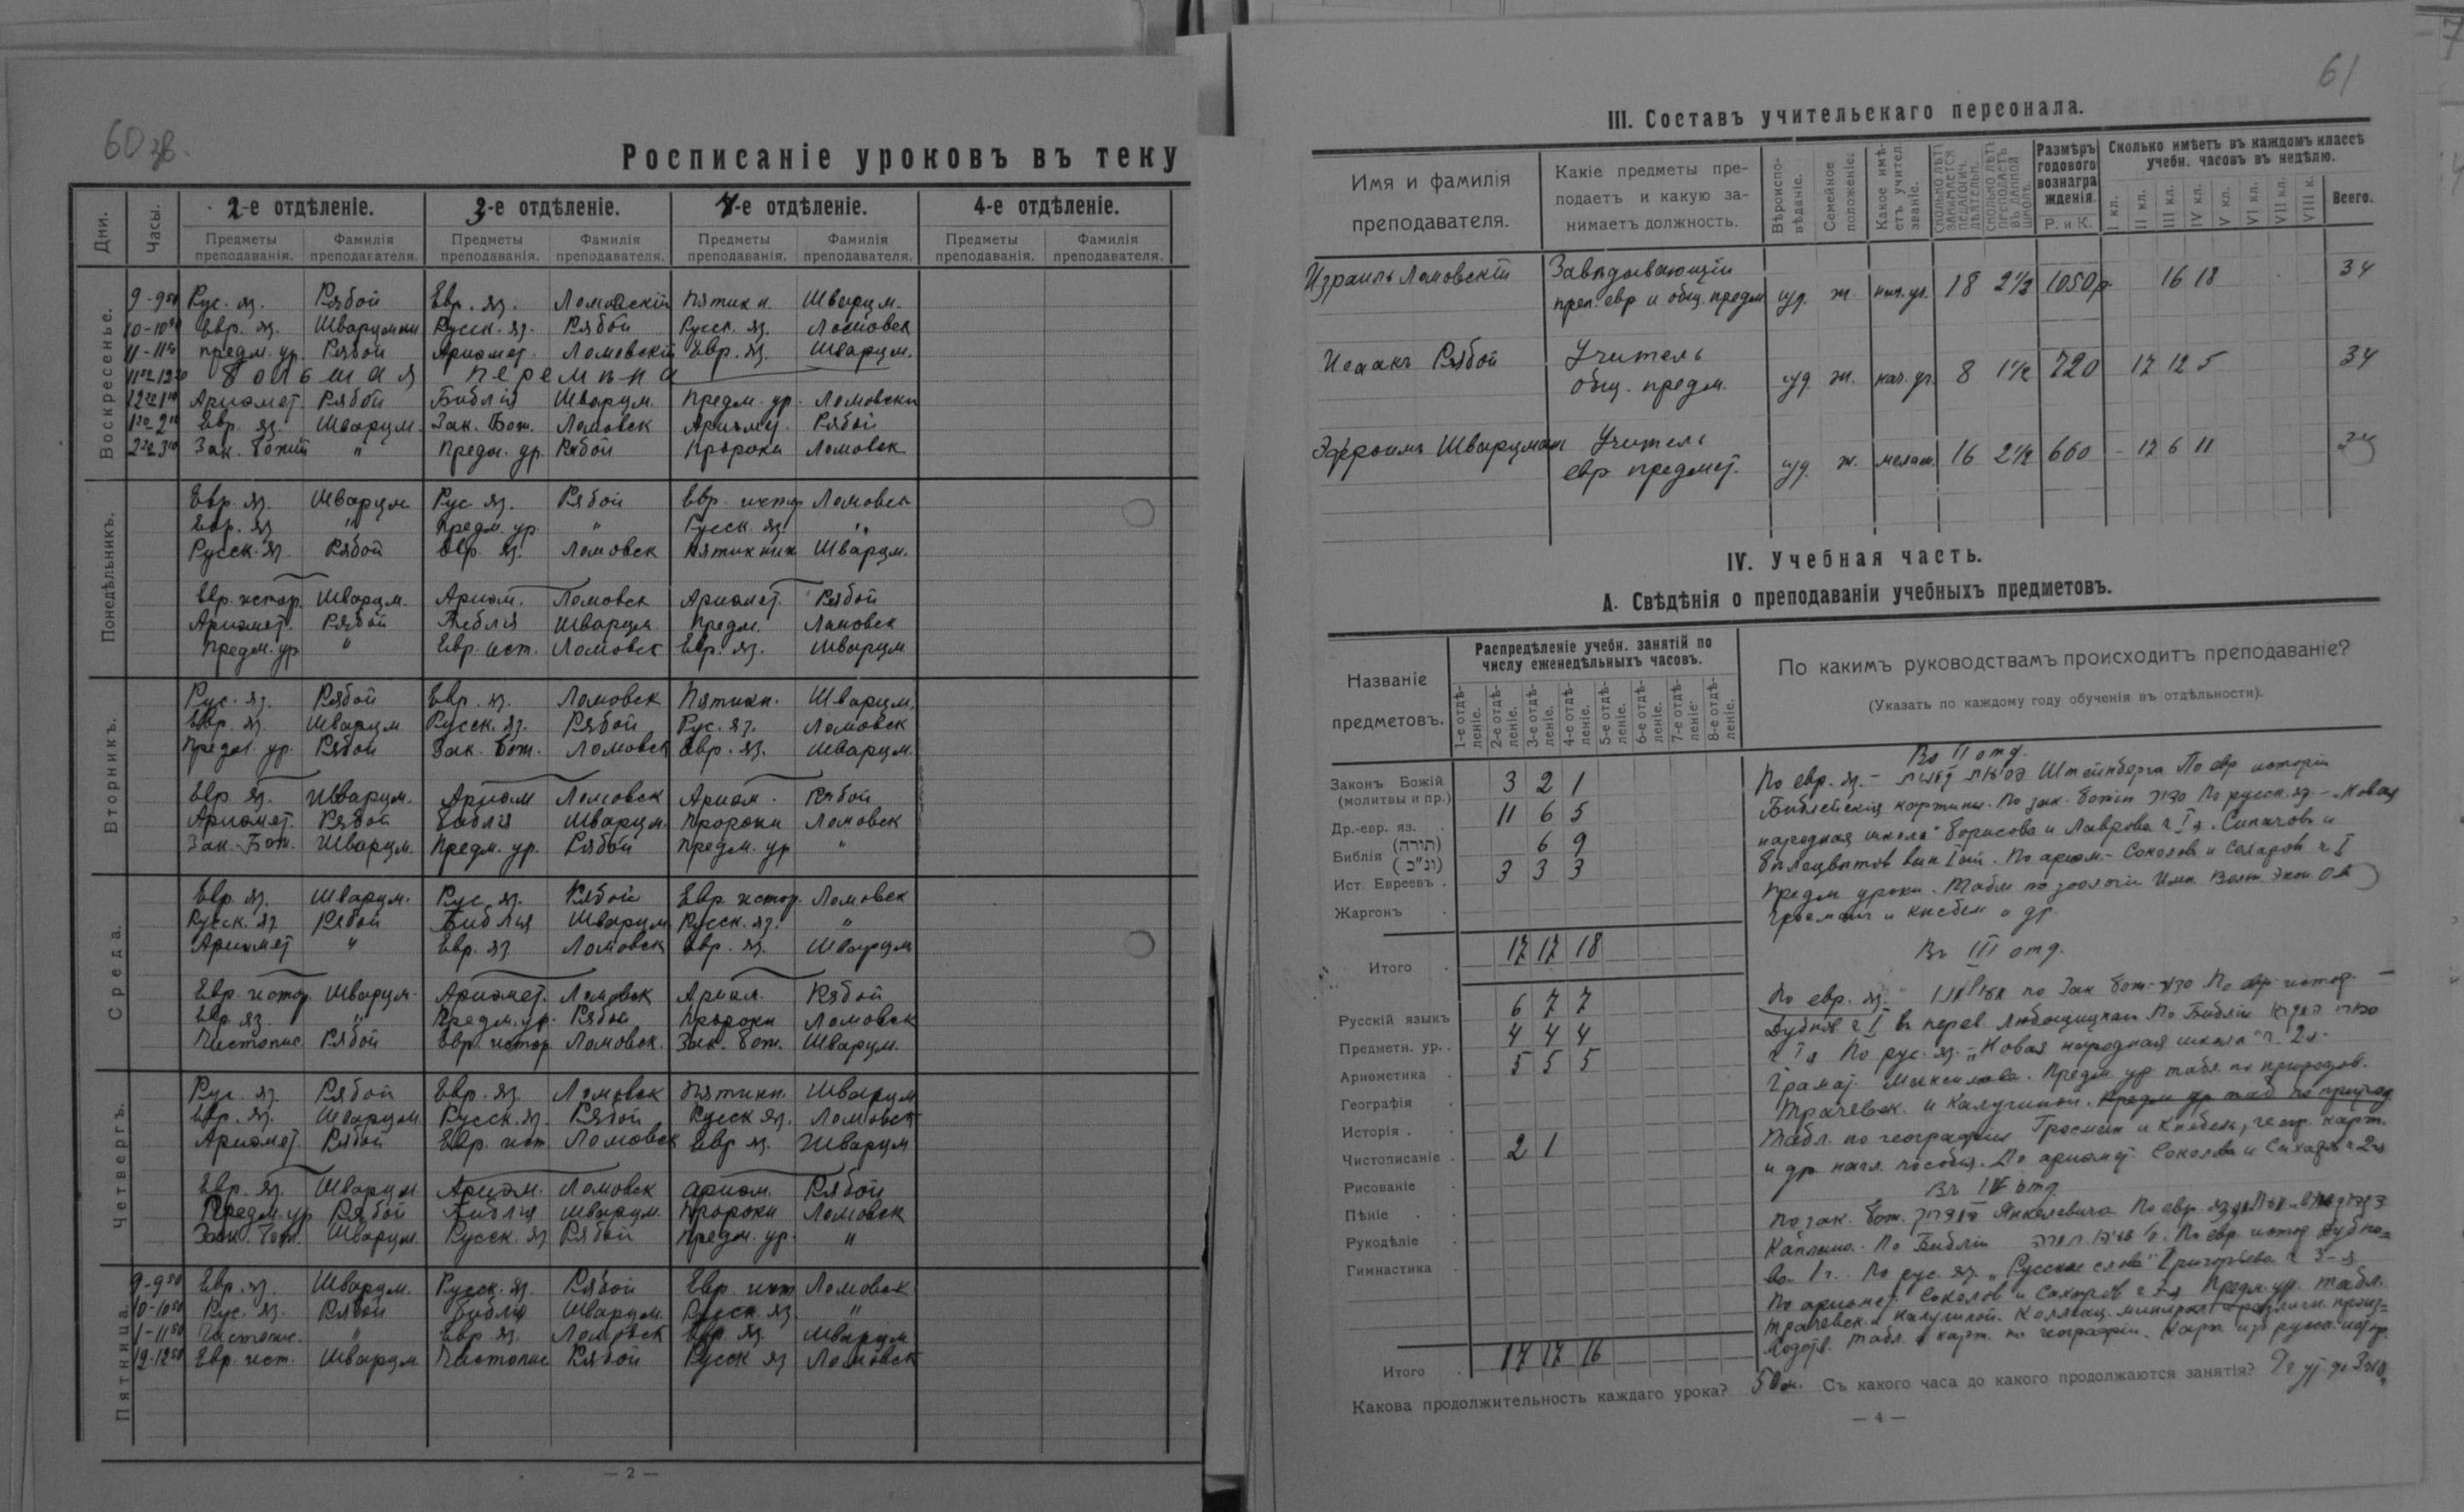 60 зв.
Росписаніе уроковъ въ теку
Дни. Часы. 2-е отдѣленіе. 3-е отдѣленіе. 4-е отдѣленіе. 4-е отдѣленіе.
Предметы преподаванія. Фамилія преподавателя. Предметы преподаванія. Фамилія преподавателя. Предметы преподаванія. Фамилія преподавателя. Предметы преподаванія. Фамилія преподавателя.
Воскресенье.
9-9 50 Рус. яз. Рябой Евр. яз. Ломовскій Пятикн. Шварцм.
10-10 50 Евр. яз. Шварцман Русск. яз. Рябой Русск. яз. Ломовск
11-11 50 предм. ур. Рябой Ариѳмет. Ломовскій Евр. яз. Шварцм.
Большая перемѣна
12 20 1 10 Ариѳмет. Рябой Библія Шварцм. Предм. ур. Ломовски
1 20-2 10 Евр. яз. Шварцм. Зак. Бож. Ломовск Ариѳмет. Рябой
2 20 3 10 Зак. Божий " Предм. ур. Рябой Пророки Ломовск
Понедѣльникъ.
Евр. яз. Шварцм Рус яз. Рябой Евр. истор Ломовск
Евр. яз " Предм. ур. " Русск. яз. "
Русск. яз. Рябой Евр. яз. Ломовск Пятикниж Шварцм.
Евр. истор. Шварцм. Ариѳм. Ломовск Ариѳмет. Рябой
Ариѳмет. Рябой Библія Шварцм Предм. Ломовск
Предм. ур " Евр. ист. Ломовск Евр. яз. Шварцм
Вторникъ.
Рус. яз. Рябой Евр. яз. Ломовск Пятикн. Шварцм.
Евр. яз. Шварцм Русск. яз. Рябой Рус. яз. Ломовск
Предм. ур. Рябой Зак. Бож. Ломовск Евр. яз. Шварцм.
Евр. яз. Шварцм. Ариѳм Ломовск Ариѳм. Рябой
Ариѳмет. Рябой Библія Шварцм. Пророки Ломовск
Зак. Бож. Шварцм. Предм. ур. Рябой Предм. ур "
Среда.
Евр. яз. Шварцм. Рус. яз. Рябой Евр. истор. Ломовск
Русск. яз Рябой Библія Шварцм Русск. яз. "
Ариѳмет " Евр. яз. Ломовск Евр. яз. Шварцм
Евр. истор. Шварцм. Ариѳмет. Ломовск Ариѳм. Рябой
Евр. яз. " Предм. ур. Рябой Пророки Ломовск
Чистопис. Рябой Евр. истор. Ломовск. Зак. Бож. Шварцм.
Четвергъ.
Рус. яз. Рябой Евр. яз. Ломовск Пятикн. Шварцм
Евр. яз. Шварцм Русск. яз. Рябой Русск яз. Ломовск
Ариѳмет. Рябой Евр. ист Ломовск Евр яз. Шварцм
Евр. яз. Шварцм Ариѳм. Ломовск ариѳм. Рябой
Предм. ур Рябой Библія Шварцм. Пророки Ломовск
Зак. Бож. Шварцм. Русск. яз Рябой Предм. ур. "
Пятница.
9-9 50 Евр. яз. Шварцм. Русск. яз. Рябой Евр. ист Ломовск
10-10 50 Рус. яз. Рябой Библія Шварцм. Русск. яз "
11-11 50 Чистопис. " Евр. яз. Ломовск Евр. яз. Шварцм
12-12 50 Евр. ист. Шварцм Чистопис Рябой Русск яз Ломовск
— 2 —
61
III. Составъ учительскаго персонала.
Имя и фамилія преподавателя. Какіе предметы преподаетъ и какую занимаетъ должность. Вѣроисповѣданіе. Семейное положеніе. Какое имѣетъ учител. званіе. Сколько лѣтъ занимается педагогич. дѣятельн. Сколько лѣтъ преподаетъ въ данной школѣ. Размѣръ годового вознагражденія. Р. и К. Сколько имѣетъ въ каждомъ классѣ учебн. часовъ въ недѣлю.
I кл. II кл. III кл. IV кл. V кл. VI кл. VII кл. VIII к. Всего.
Израиль Ломовскій Завѣдывающій
преп. евр и общ. предм иуд. ж. нач. уч. 18 2 1/2 1050 р. 16 18 34
Исаакъ Рябой Учитель
общ. предм. иуд. ж. нач. уч. 8 1 1/2 720 17 12 5 34
Эфроимъ Шварцман Учитель
евр предмет. иуд. ж. мелам. 16 2 1/2 600 - 17 6 11 34
IV. Учебная часть.
А. Свѣдѣнія о преподаваніи учебныхъ предметовъ.
Названіе предметовъ. Распредѣленіе учебн. занятій по числу еженедѣльныхъ часовъ. По какимъ руководствамъ происходитъ преподаваніе?
(Указать по каждому году обученія въ отдѣльности).
1-е отдѣленіе. 2-е отдѣленіе. 3-е отдѣленіе. 4-е отдѣленіе. 5-е отдѣленіе. 6-е отдѣленіе. 7-е отдѣленіе. 8-е отдѣленіе.
Законъ Божій (молитвы и пр.) 3 2 1
Др.-евр. яз. 11 6 5
Библія (תורה) (ונ"כ) 6 9
Ист. Евреевъ. 3 3 3
Жаргонъ
Итого 17 17 18
Русскій языкъ 6 7 7
Предметн. ур. 4 4 4
Ариѳметика 5 5 5
Географія
Исторія
Чистописаніе 2 1
Рисованіе
Пѣніе
Рукодѣліе
Гимнастика
Итого 17 17 16
Во II отд.
По евр. яз. – Штейнберга По евр исторіи
Библейскія картины. По зак. Божію По русск. яз. – „Новая
народная школа" Борисова и Лаврова ч I я.
По ариѳм. – Соколов и Сахаров ч I
Предм уроки. Табл по зоологіи
и др.
Въ III отд.
По евр. яз. по Зак Бож- По евр истор. –
Дубнов ч I в перев. По Библіи
ч I я По рус. яз. – „Новая народная школа" ч. 2я.
Грамат. Предм ур табл. по природов.
Трачевск. и Калугиной.
Табл. по географіи Гросман и Кнебель, геогр. карт.
и др нагл. пособія. По ариѳмет. Соколова и Сахарова ч 2я
Въ IV отд
По зак. Бож. Янкелевича По евр. яз
Каплана. По Библіи По евр истор Дубно=
ва 1 ч. По рус. яз. „Русское слово" Григорьева ч 3-я
По ариѳмет. Соколов и Сахаров Предм. ур. табл.
Трачевск. и Калугиной. Коллекц. минерал
табл. и карт. по географіи.
Какова продолжительность каждаго урока? 50 м. Съ какого часа до какого продолжаются занятія?
— 4 —